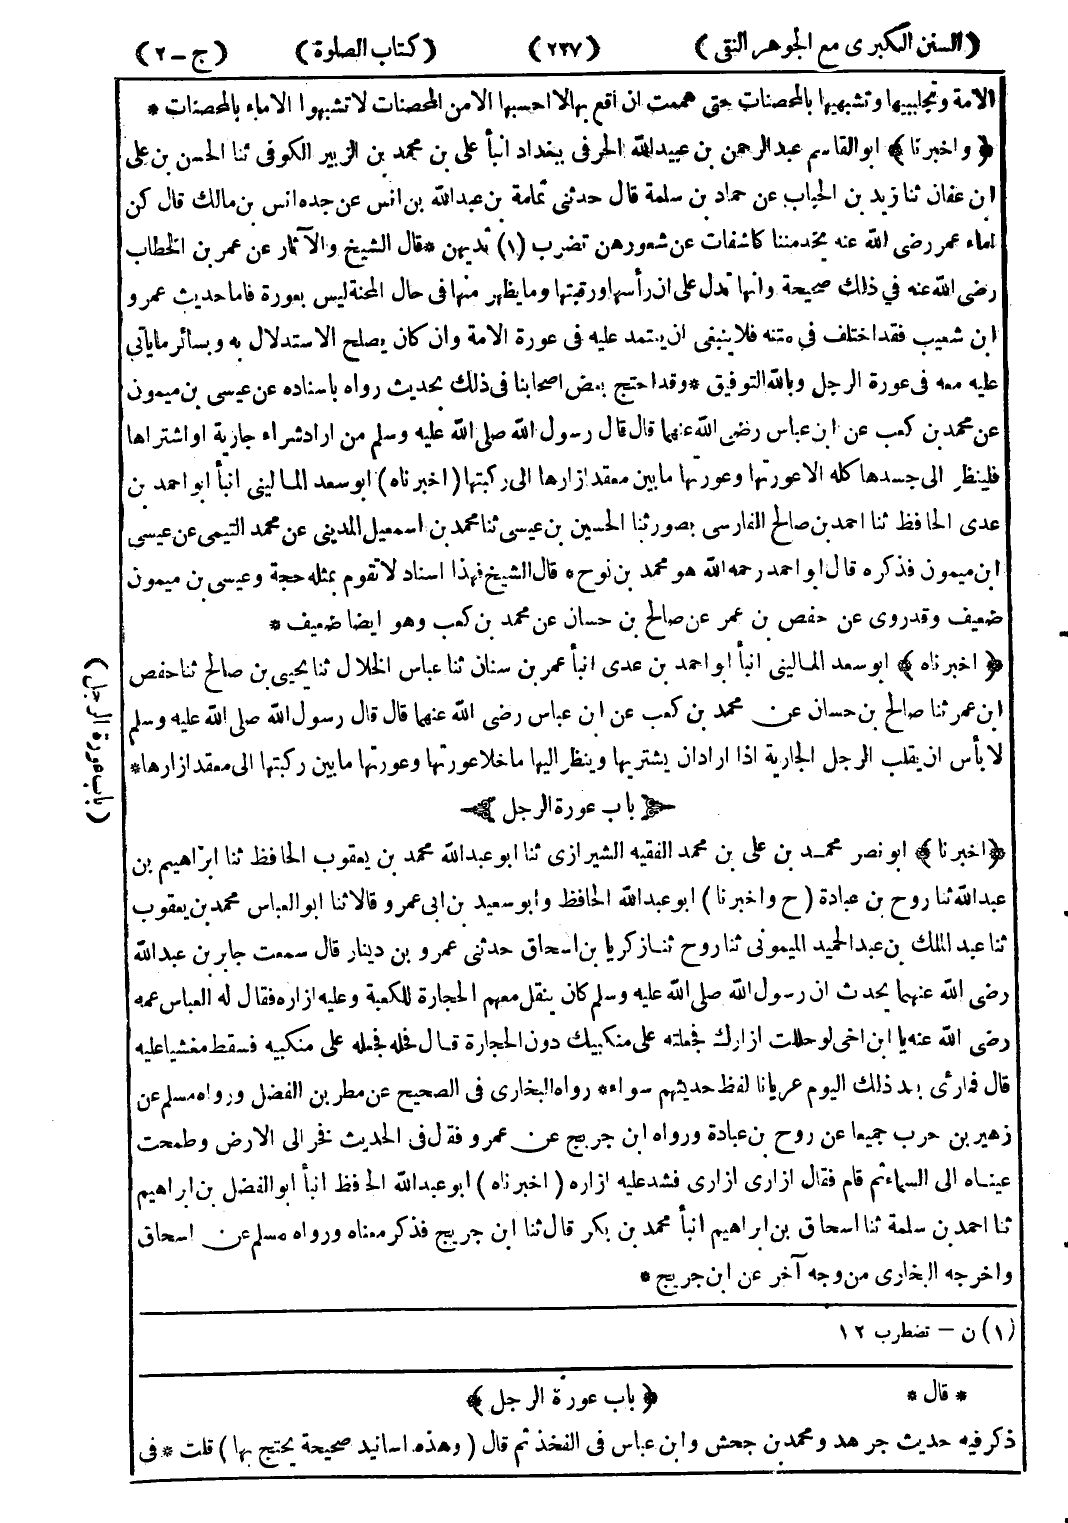 (السنن الكبرى مع الجوهر النقى) (٢٢٧) (كتاب الصلوة) (ج - ٢)
الامة وتجلبيبها وتشبهيها بالمحصنات حتى هممت ان اقع بها لا احسبها الا من المحصنات لا تشبهوا الاماء بالمحصنات *
﴿ واخبرنا ﴾ ابو القاسم عبد الرحمن بن عبيد الله الحرفى ببغداد انبأ على بن محمد بن الزبير الكوفى ثنا الحسن بن على
ابن عفان ثنا زيد بن الحباب عن حماد بن سلمة قال حدثنى ثمامة بن عبد الله بن انس عن جده انس بن مالك قال كن
اماء عمر رضى الله عنه يخدمننا كاشفات عن شعورهن تضرب (١) ثديهن * قال الشيخ والآثار عن عمر بن الخطاب
رضى الله عنه في ذلك صحيحة وانها تدل على ان رأسها ورقبتها وما يظهر منها فى حال المحنة ليس بعورة فاما حديث عمرو
ابن شعيب فقد اختلف في متنه فلا ينبغى ان يعتمد عليه فى عورة الامة وان كان يصلح الاستدلال به وبسائر ما يأتى
عليه معه فى عورة الرجل وبالله التوفيق * وقد احتج بعض اصحابنا فى ذلك بحديث رواه باسناده عن عيسى بن ميمون
عن محمد بن كعب عن ابن عباس رضى الله عنهما قال قال رسول الله صلى الله عليه وسلم من اراد شراء جارية او اشتراها
فلينظر الى جسدها كله الا عورتها وعورتها ما بين معقد ازارها الى ركبتها (اخبرناه) ابو سعد المالينى انبأ ابو احمد بن
عدى الحافظ ثنا احمد بن صالح الفارسى بصور ثنا الحسين بن عيسى ثنا محمد بن اسمعيل المدينى عن محمد التيمى عن عيسى
ابن ميمون فذكره قال ابو احمد رحمه الله هو محمد بن نوح * قال الشيخ فهذا اسناد لا تقوم بمثله حجة وعيسى بن ميمون
ضعيف وقد روى عن حفص بن عمر عن صالح بن حسان عن محمد بن كعب وهو ايضا ضعيف *
﴿ اخبرناه ﴾ ابو سعد المالينى انبأ ابو احمد بن عدى انبأ عمر بن سنان ثنا عباس الخلال ثنا يحيى بن صالح ثنا حفص
ابن عمر ثنا صالح بن حسان عن محمد بن كعب عن ابن عباس رضى الله عنهما قال قال رسول الله صلى الله عليه وسلم
لا بأس ان يقلب الرجل الجارية اذا اراد ان يشتريها وينظر اليها ما خلا عورتها وعورتها ما بين ركبتها الى معقد ازارها *
(باب عورة الرجل)
باب عورة الرجل
﴿ اخبرنا ﴾ ابو نصر محمد بن على بن محمد الفقيه الشيرازى ثنا ابو عبد الله محمد بن يعقوب الحافظ ثنا ابراهيم بن
عبد الله ثنا روح بن عبادة (ح واخبرنا) ابو عبد الله الحافظ وابو سعيد بن ابى عمرو قالا ثنا ابو العباس محمد بن يعقوب
ثنا عبد الملك بن عبد الحميد الميمونى ثنا روح ثنا زكريا بن اسحاق حدثنى عمرو بن دينار قال سمعت جابر بن عبد الله
رضى الله عنهما يحدث ان رسول الله صلى الله عليه وسلم كان ينقل معهم الحجارة للكعبة وعليه ازاره فقال له العباس عمه
رضى الله عنه يا ابن اخى لو حللت ازارك فجعلته على منكبيك دون الحجارة قال فحله فجعله على منكبيه فسقط مغشيا عليه
قال فما رئى بعد ذلك اليوم عريانا لفظ حديثهم سواء * رواه البخارى فى الصحيح عن مطر بن الفضل ورواه مسلم عن
زهير بن حرب جميعا عن روح بن عبادة ورواه ابن جريج عن عمرو فقال فى الحديث فخر الى الارض وطمحت
عيناه الى السماء ثم قام فقال ازارى ازارى فشد عليه ازاره (اخبرناه) ابو عبد الله الحافظ انبأ ابو الفضل بن ابراهيم
ثنا احمد بن سلمة ثنا اسحاق بن ابراهيم انبأ محمد بن بكر قال ثنا ابن جريج فذكر معناه ورواه مسلم عن اسحاق
واخرجه البخارى من وجه آخر عن ابن جريج *
(١) ن - تضطرب ١٢
* قال * ﴿ باب عورة الرجل ﴾
ذكر فيه حديث جرهد ومحمد بن جحش وابن عباس فى الفخذ ثم قال (وهذه اسانيد صحيحة يحتج بها) قلت * فى